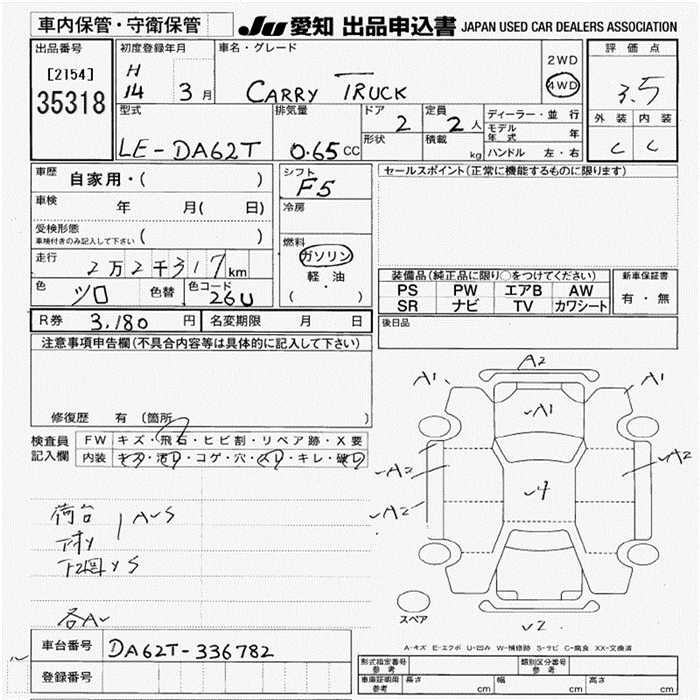 車内保管・守衛保管 JU 愛知 出品申込書 JAPAN USED CAR DEALERS ASSOCIATION
出品番号 初度登録年月 車名・グレード 評価点
[2154] 35318 H 14 3月 CARRY TRUCK 2WD 4WD 3.5
型式 排気量 ドア 定員 ディーラー・並行 外装 内装
LE-DA62T 0.65cc 2 2人 モデル年式 年 C C
形状 積載 kg ハンドル 左・右
車歴 自家用・( ) シフト F5 セールスポイント(正常に機能するものに限ります)
車検 年 月( 日) 冷房
受検形態 車検付きのみ記入して下さい ( )
燃料 ガソリン 軽・油 ( ・ )
走行 2万2千317km
装備品(純正品に限り○をつけてください) 新車保証書
色 ソロ 色替 色コード 26U
PS PW エアB AW 有・無
SR ナビ TV カワシート
R券 3,180円 名変期限 月 日 後日品
注意事項申告欄(不具合内容等は具体的に記入して下さい)
修復歴 有 (箇所 )
検査員記入欄 FW キズ・飛石・ヒビ割・リペア跡・X要
内装 キズ・汚れ・コゲ・穴・スレ・キレ・破レ
A1 A2 A1
A1
A2 A2
A2 4
荷台 A S
S
各A
2
スペア
A-キズ E-エクボ U-凹み W-補修跡 S-サビ C-腐食 XX-交換済
車台番号 DA62T-336782
登録番号
形式指定番号 参考 類別区分番号 参考
車庫証明用 参考 長さ cm 幅 cm 高さ cm